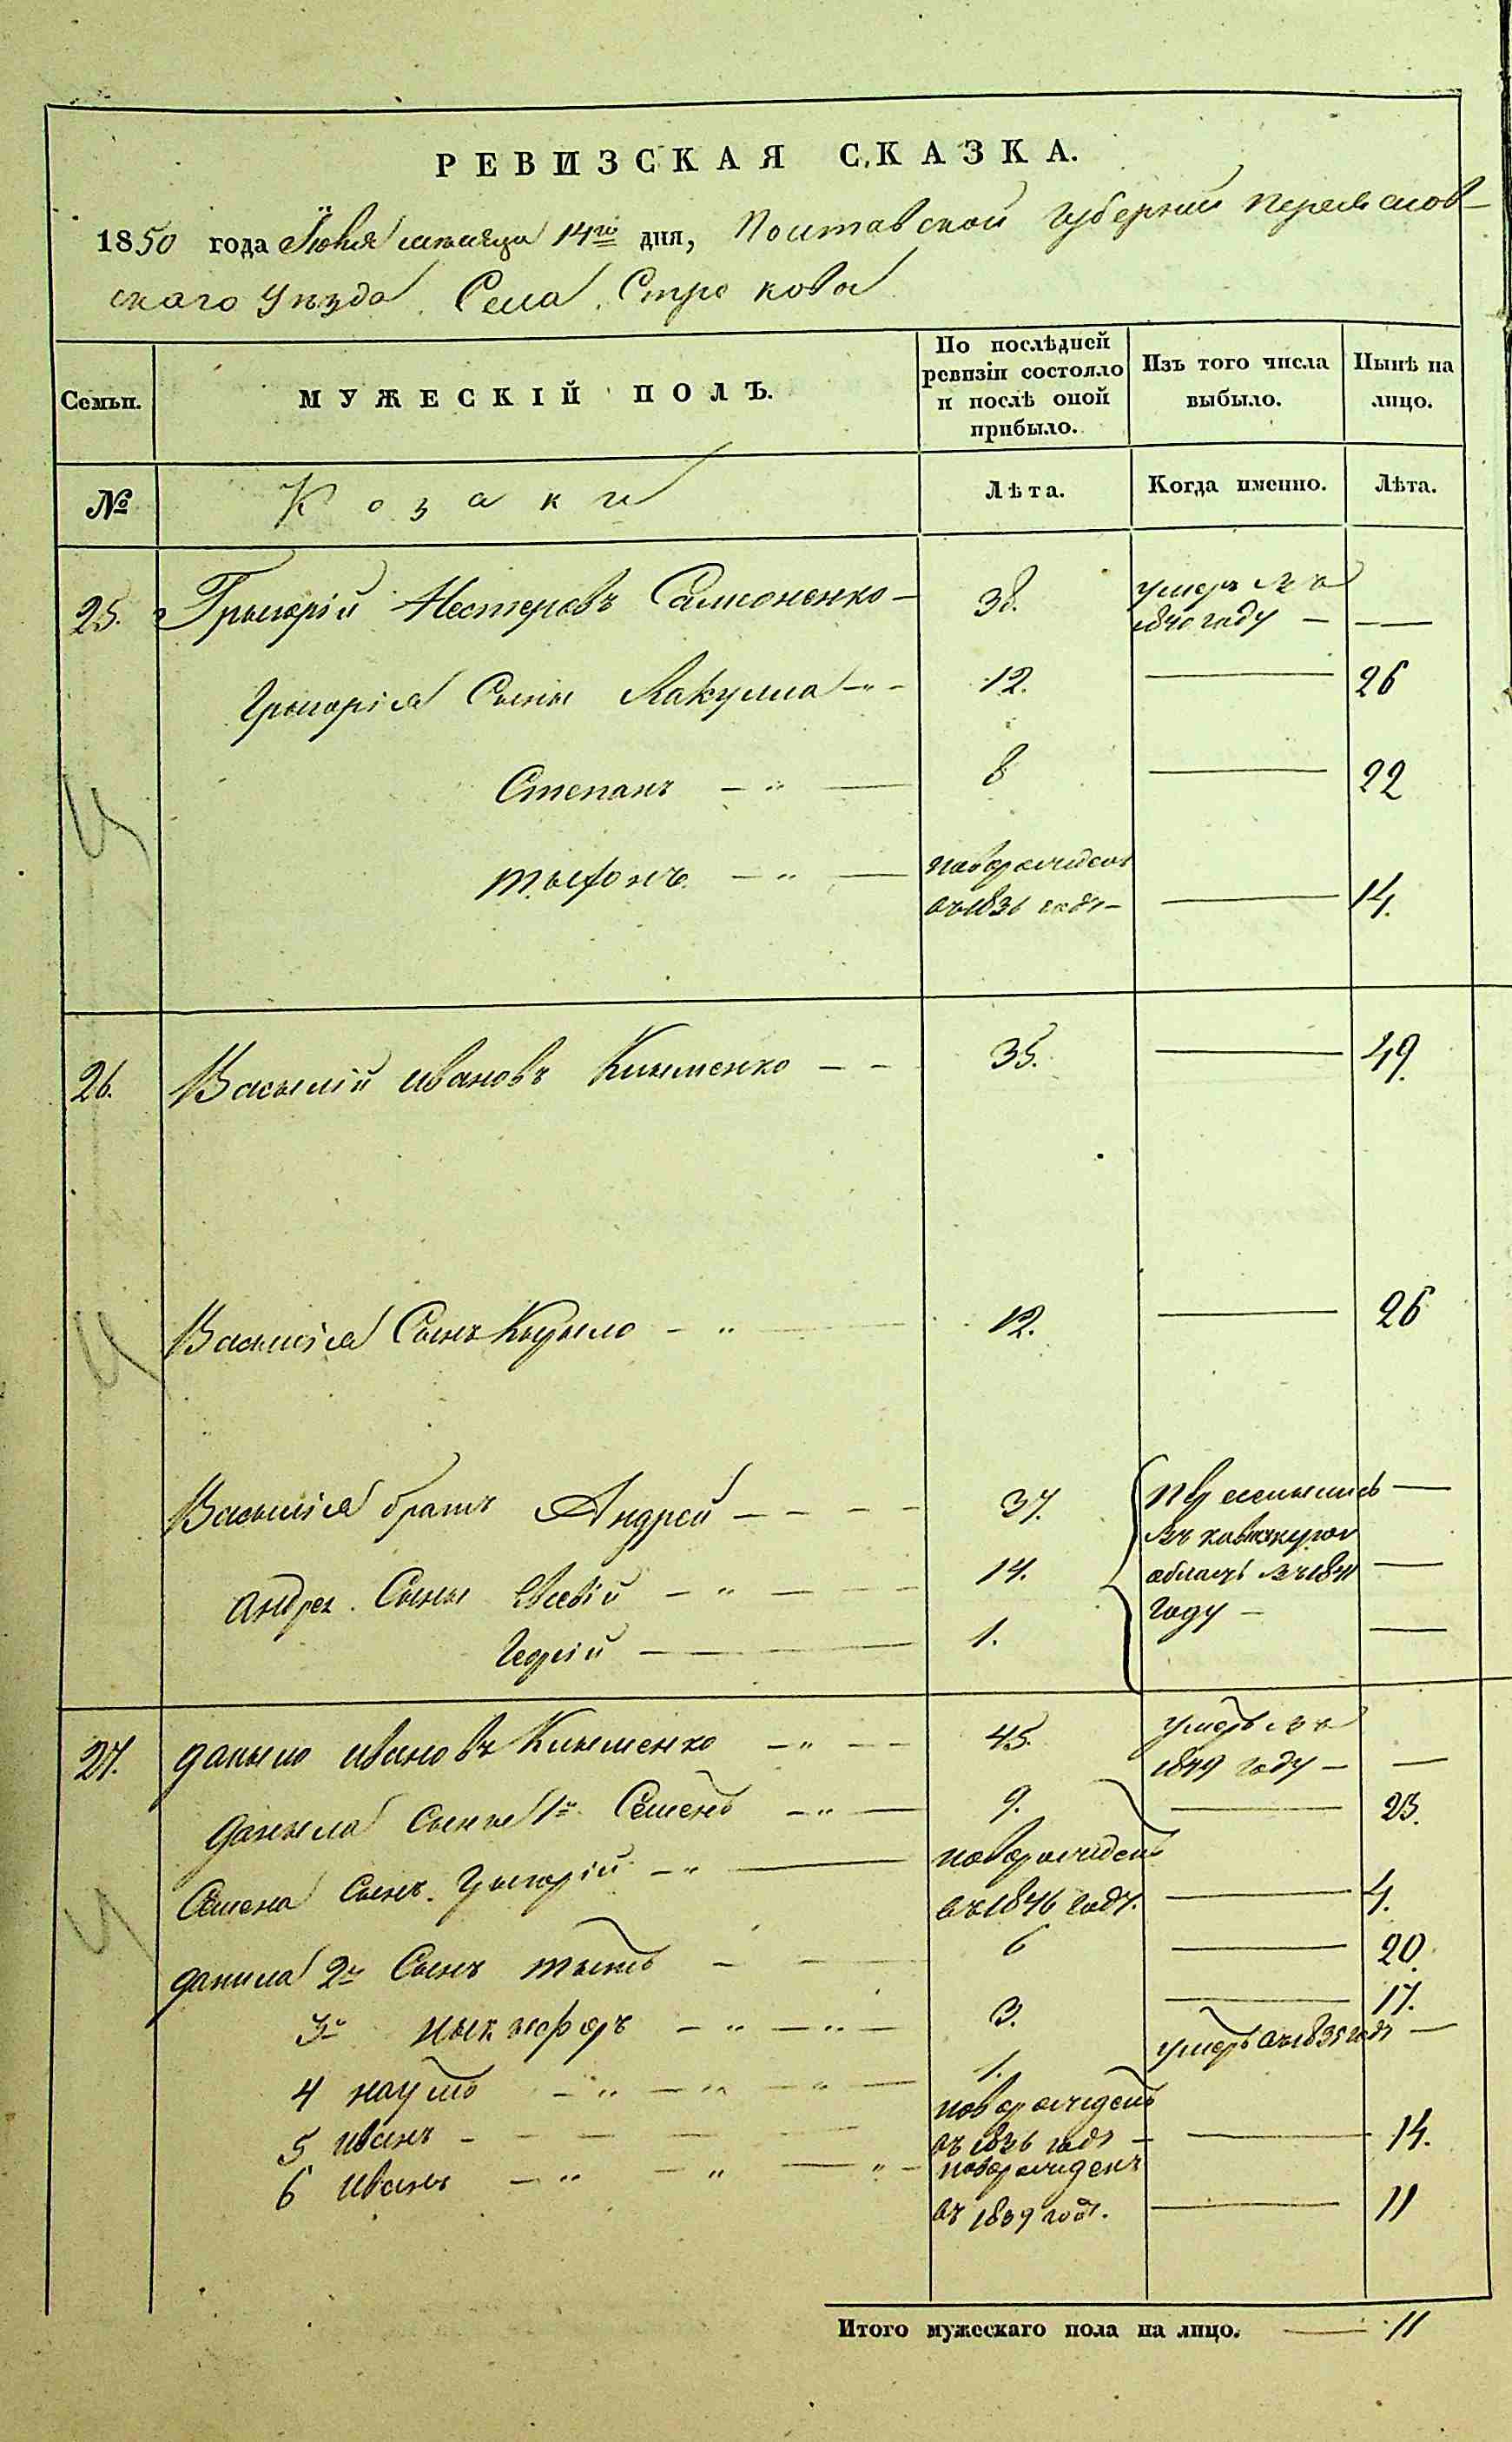 РЕВИЗСКАЯ СКАЗКА.
1850 года Іюня месяца 14го дня, Полтавской губерніи Переяслов-
скаго уѣзда Села Строкова
Семьи.
МУЖЕСКІЙ ПОЛЪ.
По послѣдней ревизіи состояло и послѣ оной прибыло.
Изъ того числа выбыло.
Нынѣ на лицо.
№
Козаки
Лѣта.
Когда именно.
Лѣта.
25. Грыгорій Нестеровъ Самоненко — 38. умеръ въ
1840 году — —
Грыгорія Сыны Макулла 12. — 26
Степанъ 8 — 22
Тыфонъ новорожденъ
въ 1836 году — 14.
26. Васылій Ивановъ Клыменко 35. — 49.
Васылія Сынъ Кырыло 12. — 26
Васылія братъ Андрей 37. Переселились —
въ кавказкую
Андрея Сыны Евсевій 14. область въ 1841 —
Георгій 1. году — —
27. Даныло Ивановъ Клыменко 45. умеръ въ
1849 году — —
Даныла Сыны 1й Семенъ 9. — 23.
Семена Сынъ Грыгорій новорожденъ
въ 1846 году. — 4.
Данила 2й Сынъ Тытъ 6 — 20.
3й Ныкыфоръ 3. — 17.
4 Наумъ 1. умеръ въ 1835 году —
5 Иванъ новорожденъ
въ 1836 году — 14.
6 Иванъ новорожденъ
въ 1839 году. — 11
Итого мужескаго пола на лицо. — 11